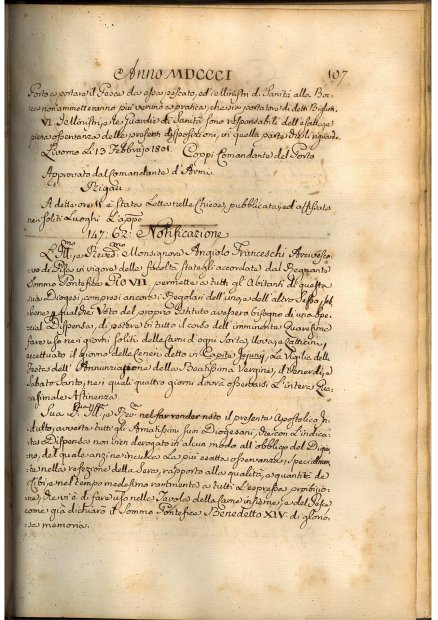 Anno MDCCCI 107
Porto a portare il Pesce da essi pescato, ed i Ministri di Sanità alla Boc-
ca non ammetteranno più veruno a pratica, che sia portatore di detti
VI. I Ministri, e le Guardie di Sanità sono responsabili dell'esatta, e
piena osservanza delle presenti disposizioni, in quella parte che li riguarda
Livorno Li 13 Febbrajo 1801. Coppi Comandante del Porto
Approvato dal Comandante d'Armi
Rigau
A dette ore è stata Letta nelle Chiese, pubblicata, ed affissata
nei soliti Luoghi
147. 62. Notificazione
L'Ill.mo e Rev.mo Monsignore Angiolo Franceschi Arcivesco-
vo di Pisa in vigore delle facoltà stategli accordate dal Regnante
Sommo Pontefice Pio VII. permette a tutti gli Abitanti di questa
sua Diogesi compresi ancora i Regolari dell'uno, e dell'altro Sesso,
quali in Veto del proprio Istituto avessero bisogno di una spe-
cial Dispensa, di potere in tutto il corso dell'imminente Quaresima
fare uso nei giorni soliti delle Carni d'ogni Sorte, Uova, e Latticini,
eccettuato il Giorno delle Ceneri detto in Capite Jejunij, La Vigilia della
Festa dell'Annunziazione della Beatissima Vergine, il Venerdì, e
Sabato Santo, nei quali quattro giorni dovrà osservarsi L'intera Qua-
resimale Astinenza.
Sua Sig. Ill.ma e Rev.ma nel far render noto il presente Apostolico In-
dulto, avverte tutti gli Amatissimi suoi Diogesani, che con L'indica-
ta Dispensa non vien derogato in alcun modo all'obbligo del Digiu-
no, del quale anzi ne inculca La più esatta osservanza, specialmen-
te nella refezione della Sera, rapporto alla qualità, e quantità de'
Cibi, e nel tempo medesimo rammenta a tutti L'espressa proibizio-
ne, che vi è di fare uso nelle Tavole della Carne insieme, e del Pesce
come già dichiarò il Sommo Pontefice Benedetto XIV. di glorio-
sa memoria.